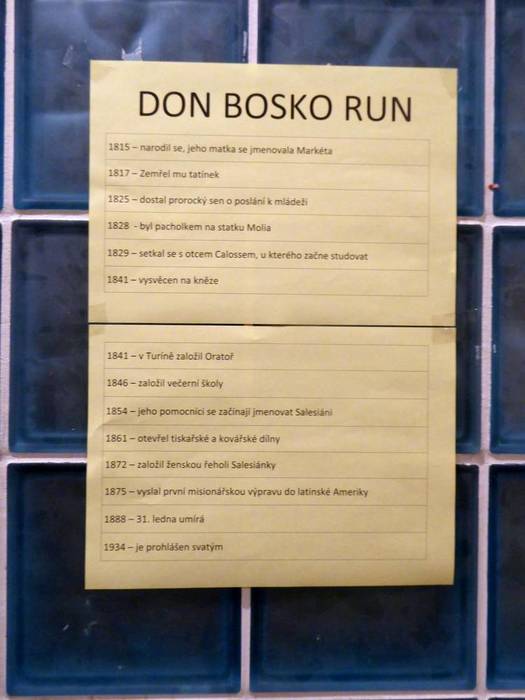 DON BOSKO RUN
1815 – narodil se, jeho matka se jmenovala Markéta
1817 – Zemřel mu tatínek
1825 – dostal prorocký sen o poslání k mládeži
1828 - byl pacholkem na statku Molia
1829 – setkal se s otcem Calossem, u kterého začne studovat
1841 – vysvěcen na kněze
1841 – v Turíně založil Oratoř
1846 – založil večerní školy
1854 – jeho pomocníci se začínají jmenovat Salesiáni
1861 – otevřel tiskařské a kovářské dílny
1872 – založil ženskou řeholi Salesiánky
1875 – vyslal první misionářskou výpravu do latinské Ameriky
1888 – 31. ledna umírá
1934 – je prohlášen svatým